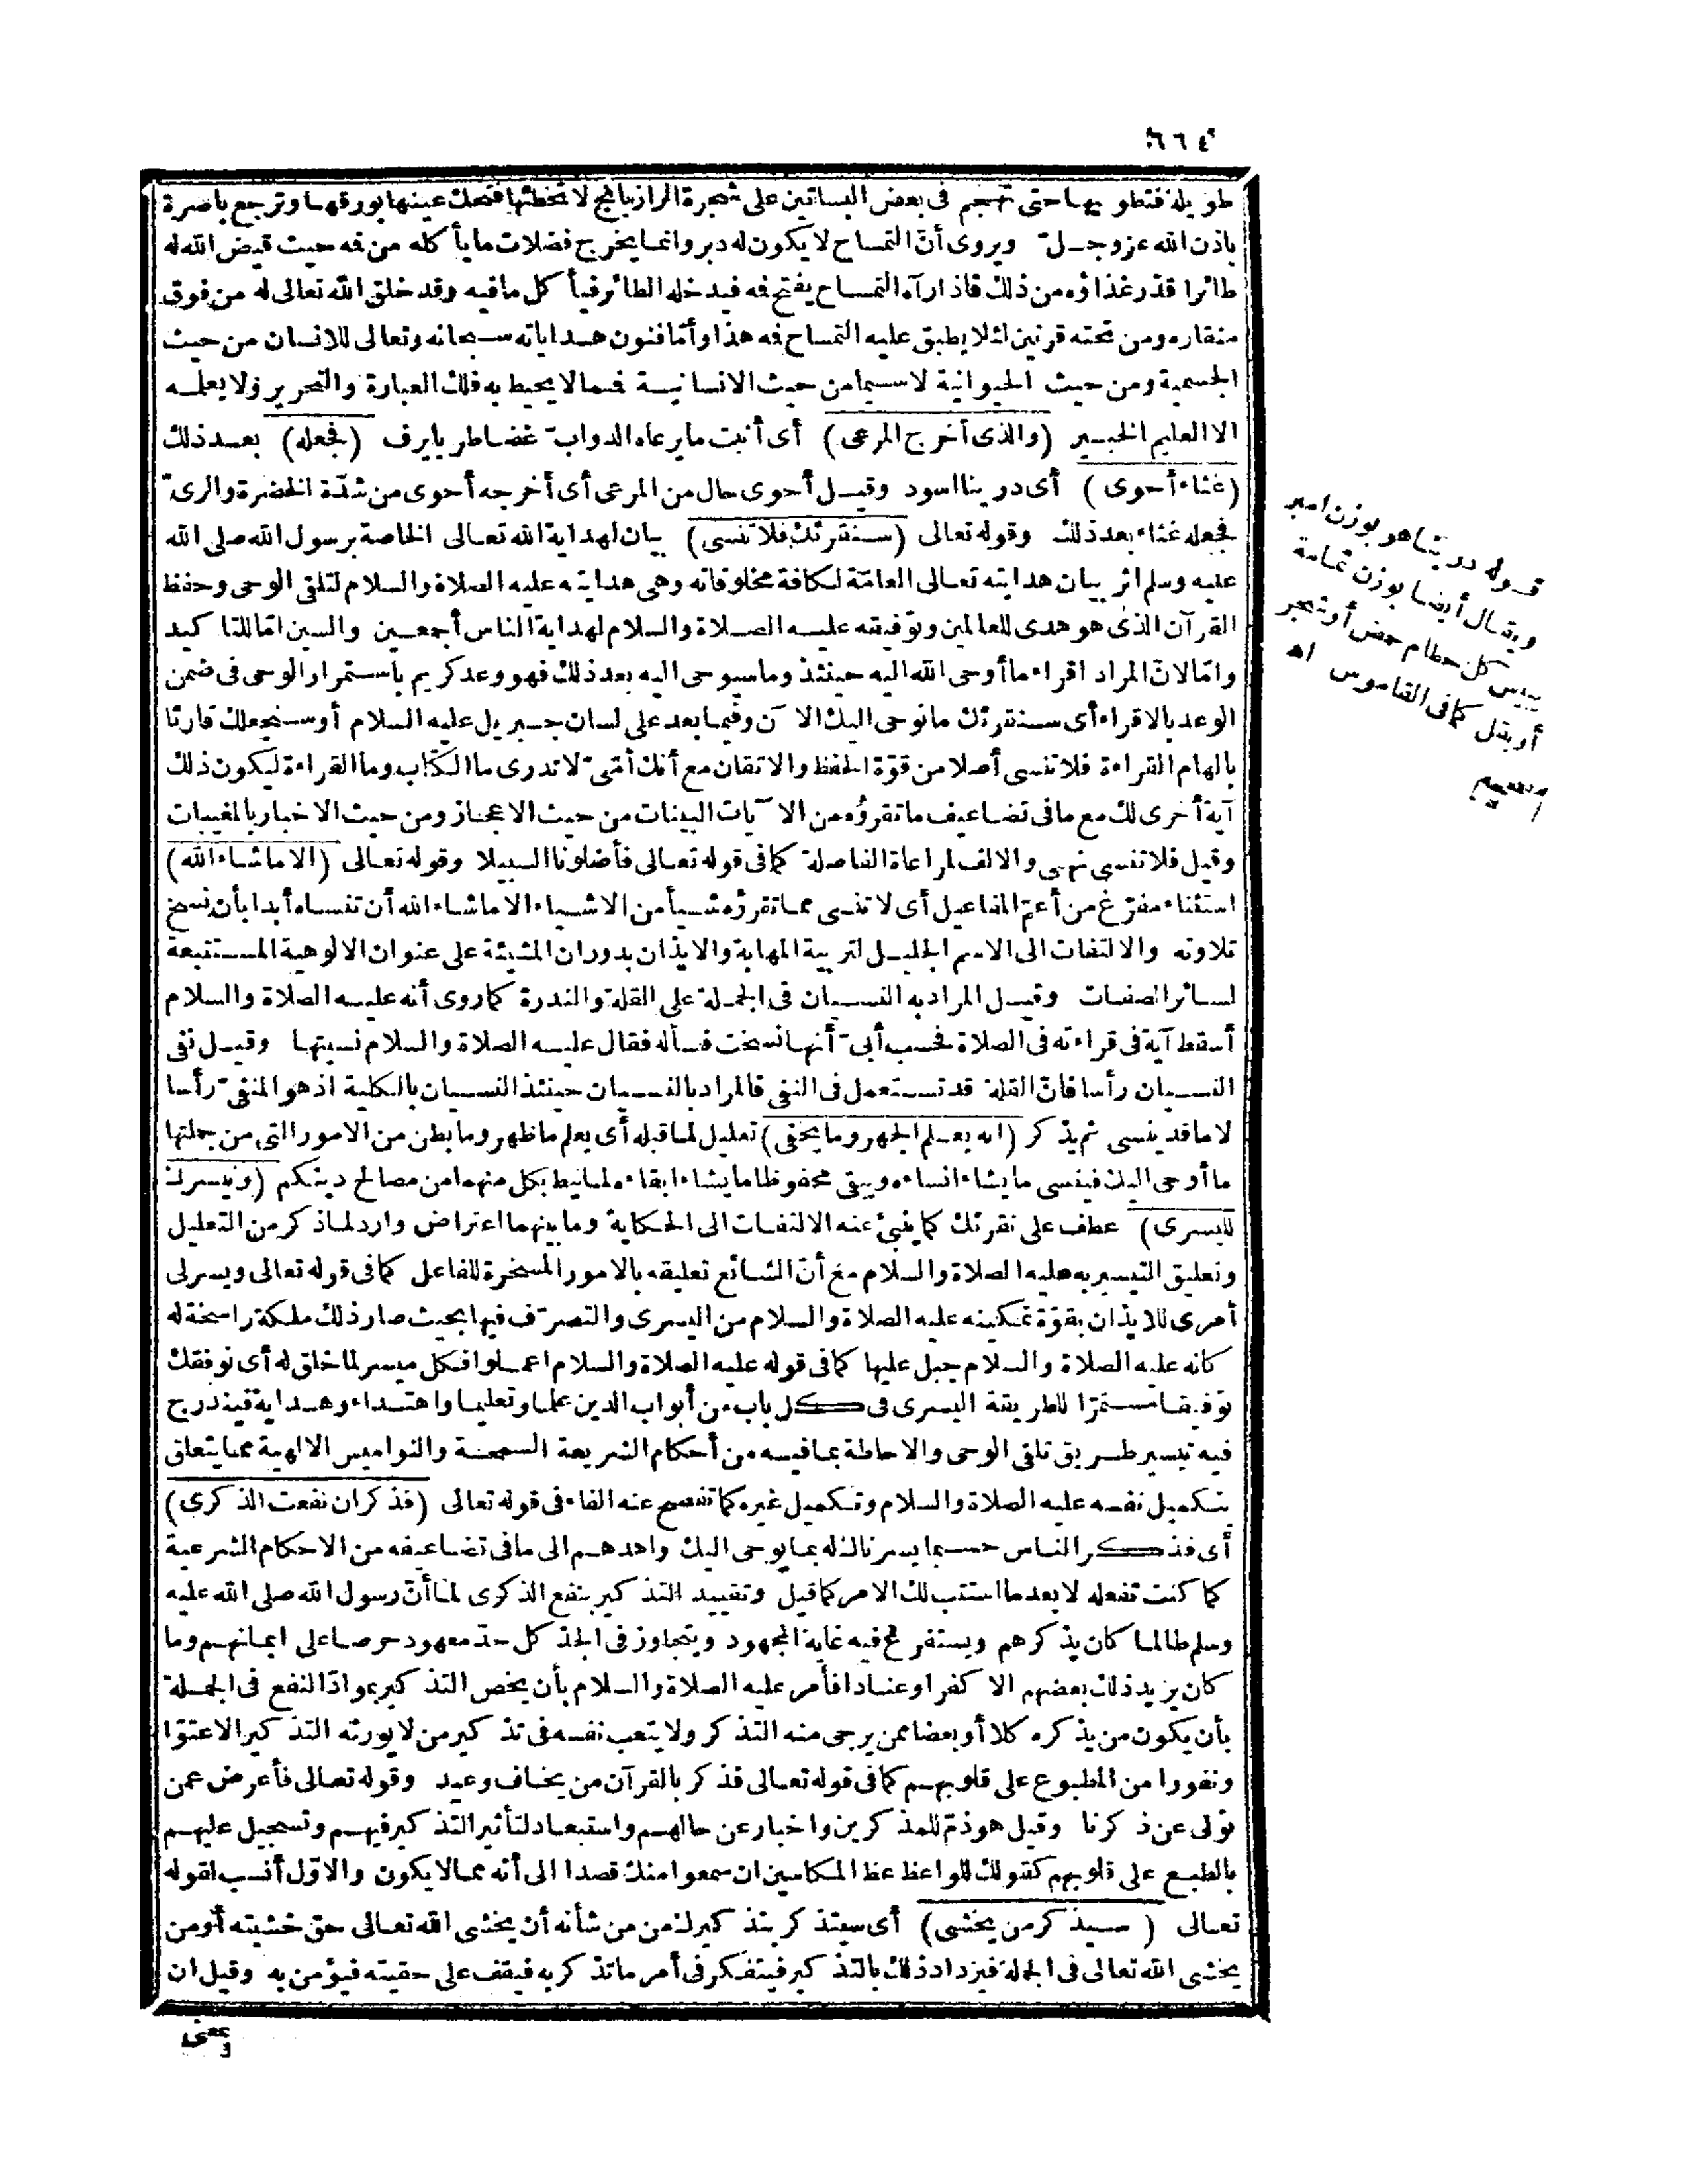 ٦٦٤
طويلة فتطويها حتى تهجم فى بعض البساتين على شجرة الرازيانج لا تخطئها فتحك عينها بورقها وترجع باصرة
باذن الله عز وجل ويروى أن التمساح لا يكون له دبر وانما يخرج فضلات ما يأكله من فمه حيث قيض الله له
طائرا قدر غذاؤه من ذلك فاذا رآه التمساح يفتح فمه فيدخله الطائر فيأكل ما فيه وقد خلق الله تعالى له من فوق
منقاره ومن تحته قرنين لئلا يطبق عليه التمساح فمه هذا وأما فنون هداياته سبحانه وتعالى للانسان من حيث
الجسمية ومن حيث الحيوانية لا سيما من حيث الانسانية فمما لا يحيط به فلك العبارة والتحرير ولا يعلمه
الا العليم الخبير (والذى أخرج المرعى) أى أنبت ما يرعاه الدواب غضا طريا يرف (فجعله) بعد ذلك
(غثاء أحوى) أى درينا اسود وقيل أحوى حال من المرعى أى أخرجه أحوى من شدّة الخضرة والرىّ
فجعله غثاء بعد ذلك وقوله تعالى (سنقرئك فلا تنسى) بيان لهداية الله تعالى الخاصة برسول الله صلى الله
عليه وسلم اثر بيان هدايته تعالى العامّة لكافة مخلوقاته وهى هدايته عليه الصلاة والسلام لتلقى الوحى وحفظ
القرآن الذى هو هدى للعالمين وتوفيقه عليه الصلاة والسلام لهداية الناس أجمعين والسين امّا للتا كيد
وامّا لانّ المراد اقراء ما أوحى الله اليه حينئذ وما سيوحى اليه بعد ذلك فهو وعد كريم باستمرار الوحى فى ضمن
الوعد بالاقراء أى سنقرئك ما نوحى اليك الآن وفيما بعد على لسان جبريل عليه السلام أو سنجعلك قارئا
بالهام القراءة فلا تنسى أصلا من قوّة الحفظ والاتقان مع أنك أمّىّ لا تدرى ما الكتاب وما القراءة ليكون ذلك
آية أخرى لك مع ما فى تضاعيف ما تقرؤه من الآيات البينات من حيث الاعجاز ومن حيث الاخبار بالمغيبات
وقيل فلا تنسى نهى والالف لمراعاة الفاصلة كما فى قوله تعالى فأضلونا السبيلا وقوله تعالى (الا ما شاء الله)
استثناء مفرّغ من أعمّ المفاعيل أى لا تنسى مما تقرؤه شيأ من الاشياء الا ما شاء الله أن تنساه أبدا بأن نسخ
تلاوته والالتفات الى الاسم الجليل لتربية المهابة والايذان بدوران المشيئة على عنوان الالوهية المستتبعة
لسائر الصفات وقيل المراد به النسيان فى الجملة على القلة والندرة كما روى أنه عليه الصلاة والسلام
أسقط آية فى قراءته فى الصلاة فحسب أبىّ أنها نسخت فسأله فقال عليه الصلاة والسلام نسيتها وقيل نفى
النسيان رأسا فانّ القلة قد تستعمل فى النفى فالمراد بالنسيان حينئذ النسيان بالكلية اذ هو المنفىّ رأسا
لا ما قد ينسى ثم يذكر (انه يعلم الجهر وما يخفى) تعليل لما قبله أى يعلم ما ظهر وما بطن من الامور التى من جملتها
ما أوحى اليك فينسى ما يشاء انساءه ويبقى محفوظا ما يشاء ابقاءه لما نيط بكل منهما من مصالح دينكم (ونيسرك
لليسرى) عطف على نقرئك كما ينبئ عنه الالتفات الى الحكاية وما بينهما اعتراض وارد لما ذكر من التعليل
وتعليق التيسير به عليه الصلاة والسلام مع أنّ الشائع تعليقه بالامور المسخرة للفاعل كما فى قوله تعالى ويسر لى
أمرى للايذان بقوّة تمكينه عليه الصلاة والسلام من اليسرى والتصرّف فيها بحيث صار ذلك ملكة راسخة له
كانه عليه الصلاة والسلام جبل عليها كما فى قوله عليه الصلاة والسلام اعملوا فكل ميسر لما خلق له أى نوفقك
توفيقا مستمرّا للطريقة اليسرى فى كل باب من أبواب الدين علما وتعليما واهتداء وهداية فيندرج
فيه تيسير طريق تلقى الوحى والاحاطة بما فيه من أحكام الشريعة السمحة والنواميس الالهية مما يتعلق
بتكميل نفسه عليه الصلاة والسلام وتكميل غيره كما تفصح عنه الفاء فى قوله تعالى (فذكر ان نفعت الذكرى)
أى فذكر الناس حسبما يسرناك له بما يوحى اليك واهدهم الى ما فى تضاعيفه من الاحكام الشرعية
كما كنت تفعله لا بعد ما استتب لك الامر كما قيل وتقييد التذكير بنفع الذكرى لما أنّ رسول الله صلى الله عليه
وسلم طالما كان يذكرهم ويستفرغ فيه غاية المجهود ويتجاوز فى الجدّ كل حدّ معهود حرصا على ايمانهم وما
كان يزيد ذلك بعضهم الا كفرا وعنادا فأمر عليه الصلاة والسلام بأن يخص التذكير بموادّ النفع فى الجملة
بأن يكون من يذكره كلا أو بعضا ممن يرجى منه التذكر ولا يتعب نفسه فى تذكير من لا يورثه التذكير الا عتوّا
ونفورا من المطبوع على قلوبهم كما فى قوله تعالى فذكر بالقرآن من يخاف وعيد وقوله تعالى فأعرض عمن
تولى عن ذكرنا وقيل هو ذمّ للمذكرين واخبار عن حالهم واستبعاد لتأثير التذكير فيهم وتسجيل عليهم
بالطبع على قلوبهم كقولك للواعظ عظ المكاسين ان سمعوا منك قصدا الى أنه مما لا يكون والاوّل أنسب لقوله
تعالى (سيذكر من يخشى) أى سيتذكر بتذكيرك من من شأنه أن يخشى الله تعالى حق خشيته أو من
يخشى الله تعالى فى الجملة فيزداد ذلك بالتذكير فيتفكر فى أمر ما تذكر به فيقف على حقيته فيؤمن به وقيل ان
قوله درينا هو بوزن امير
ويقال أيضا بوزن ثمامة
يبيس كل حطام حمض أو شجر
أو بقل كما فى القاموس اه